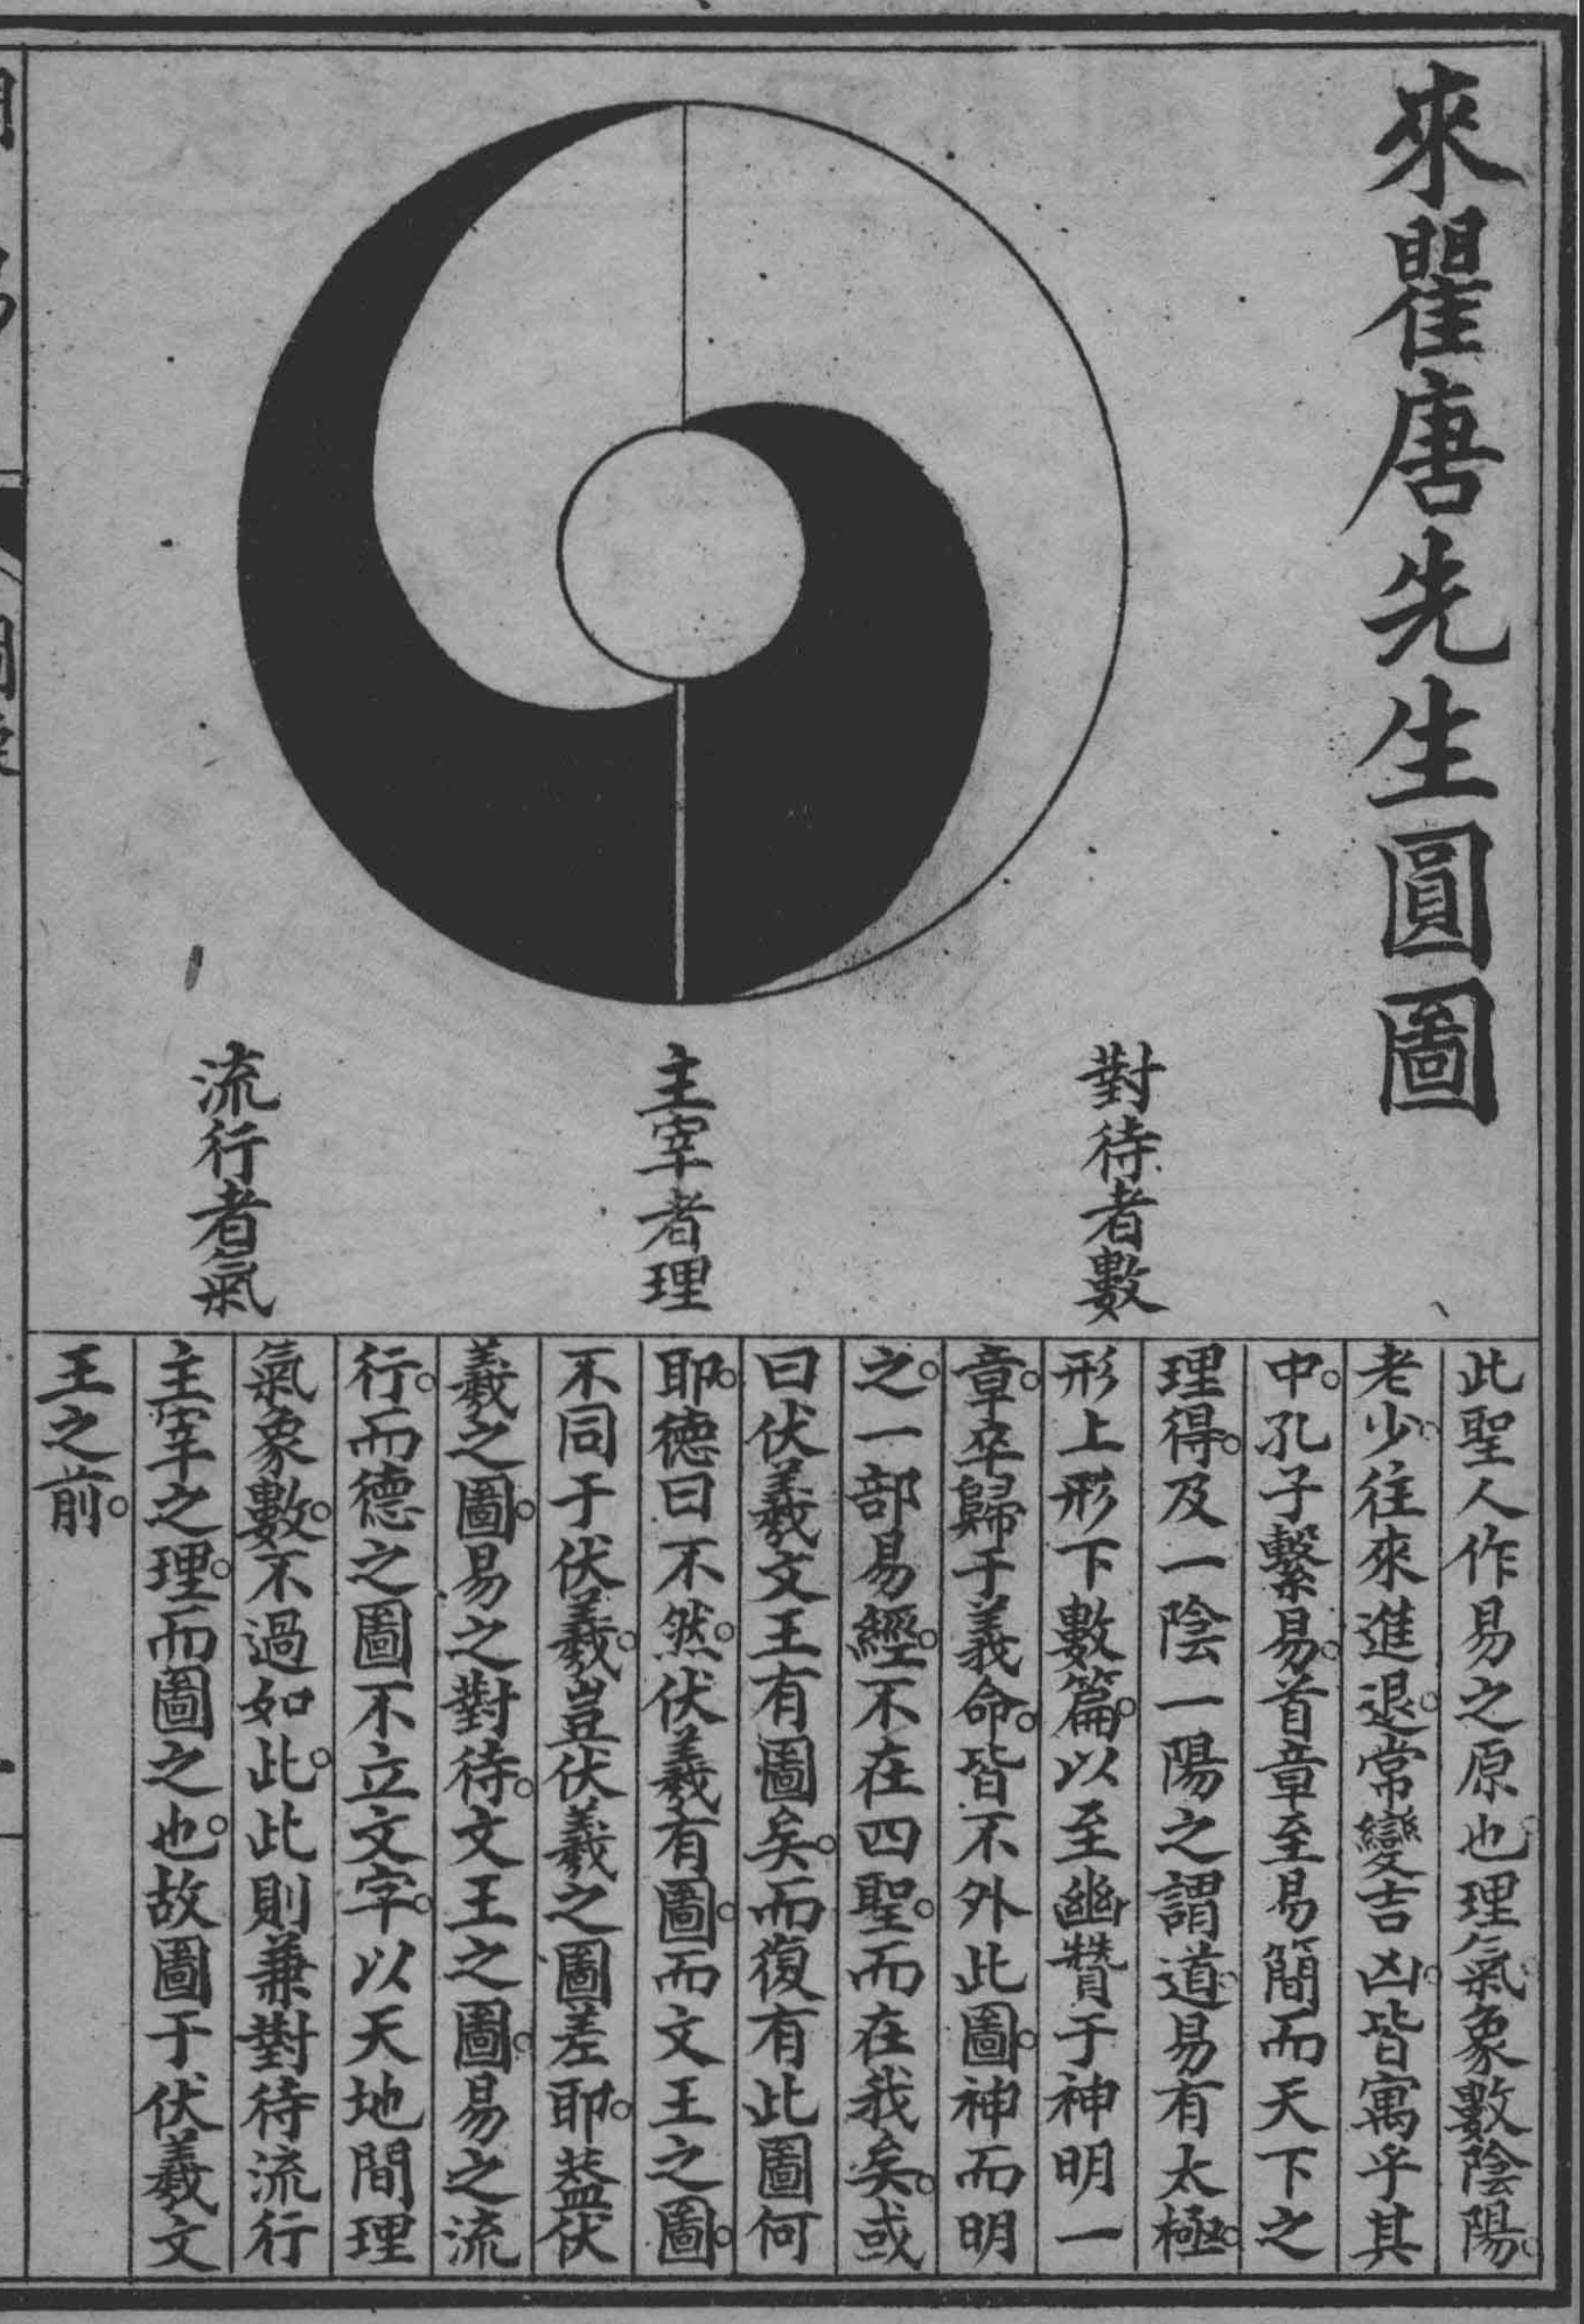 來瞿唐先生圓圖
對待者數
主宰者理
流行者氣
此聖人作易之原也理氣象數陰陽。
老少。往來進退。常變吉凶。皆寓乎其
中。孔子繫易。首章至易簡而天下之
理得。及一陰一陽之謂道。易有太極。
形上形下數篇。以至幽贊于神明一
章。卒歸于義命。皆不外此圖。神而明
之。一部易經。不在四聖。而在我矣。或
曰伏羲文王有圖矣。而復有此圖何
耶。德曰不然。伏羲有圖。而文王之圖。
不同于伏羲。豈伏羲之圖差耶。葢伏
羲之圖。易之對待。文王之圖。易之流
行。而德之圖不立文字。以天地間理
氣象數。不過如此。此則兼對待流行
主宰之理。而圖之也。故圖于伏羲文
王之前。